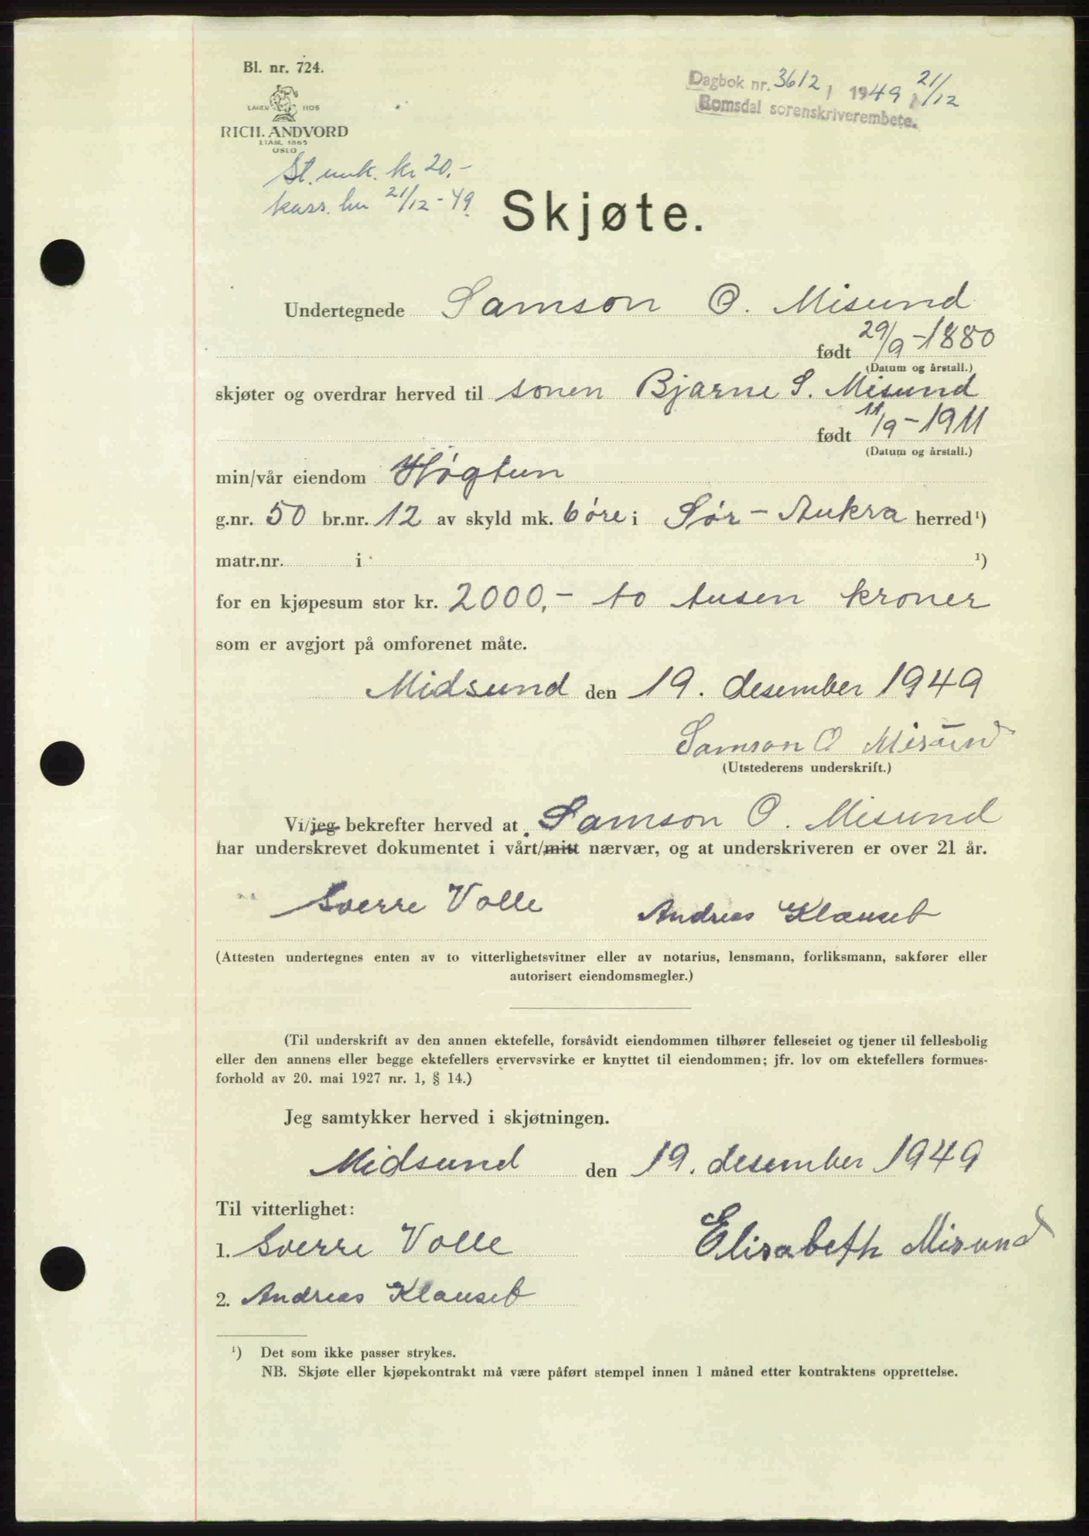 Bl. nr. 724.
LAGER 1105
RICH. ANDVORD
ETABL. 1865
OSLO
Dagbok nr. 3612, 1949, 21/12
Romsdal sorenskriverembete.
St. merk. kr 20,-
kass. 21/12-49.
Skjøte.
Undertegnede Samson O. Misund
født 29/9-1880
(Datum og årstall.)
skjøter og overdrar herved til sønen Bjarne S. Misund
født 11/9-1911
(Datum og årstall.)
min/vår eiendom Høgtun
g.nr. 50 br.nr. 12 av skyld mk. 6 øre i Sør-Aukra herred¹)
matr.nr. i ¹)
for en kjøpesum stor kr. 2000,- to tusen kroner
som er avgjort på omforenet måte.
Midsund den 19. desember 1949
Samson O Misund
(Utstederens underskrift.)
Vi/jeg bekrefter herved at Samson O. Misund
har underskrevet dokumentet i vårt/mitt nærvær, og at underskriveren er over 21 år.
Sverre Volle Andreas Klauset
(Attesten undertegnes enten av to vitterlighetsvitner eller av notarius, lensmann, forliksmann, sakfører eller
autorisert eiendomsmegler.)
(Til underskrift av den annen ektefelle, forsåvidt eiendommen tilhører felleseiet og tjener til fellesbolig
eller den annens eller begge ektefellers ervervsvirke er knyttet til eiendommen; jfr. lov om ektefellers formues-
forhold av 20. mai 1927 nr. 1, § 14.)
Jeg samtykker herved i skjøtningen.
Midsund den 19. desember 1949
Til vitterlighet:
1. Sverre Volle Elisabeth Misund
2. Andreas Klauset
¹) Det som ikke passer strykes.
NB. Skjøte eller kjøpekontrakt må være påført stempel innen 1 måned etter kontraktens opprettelse.